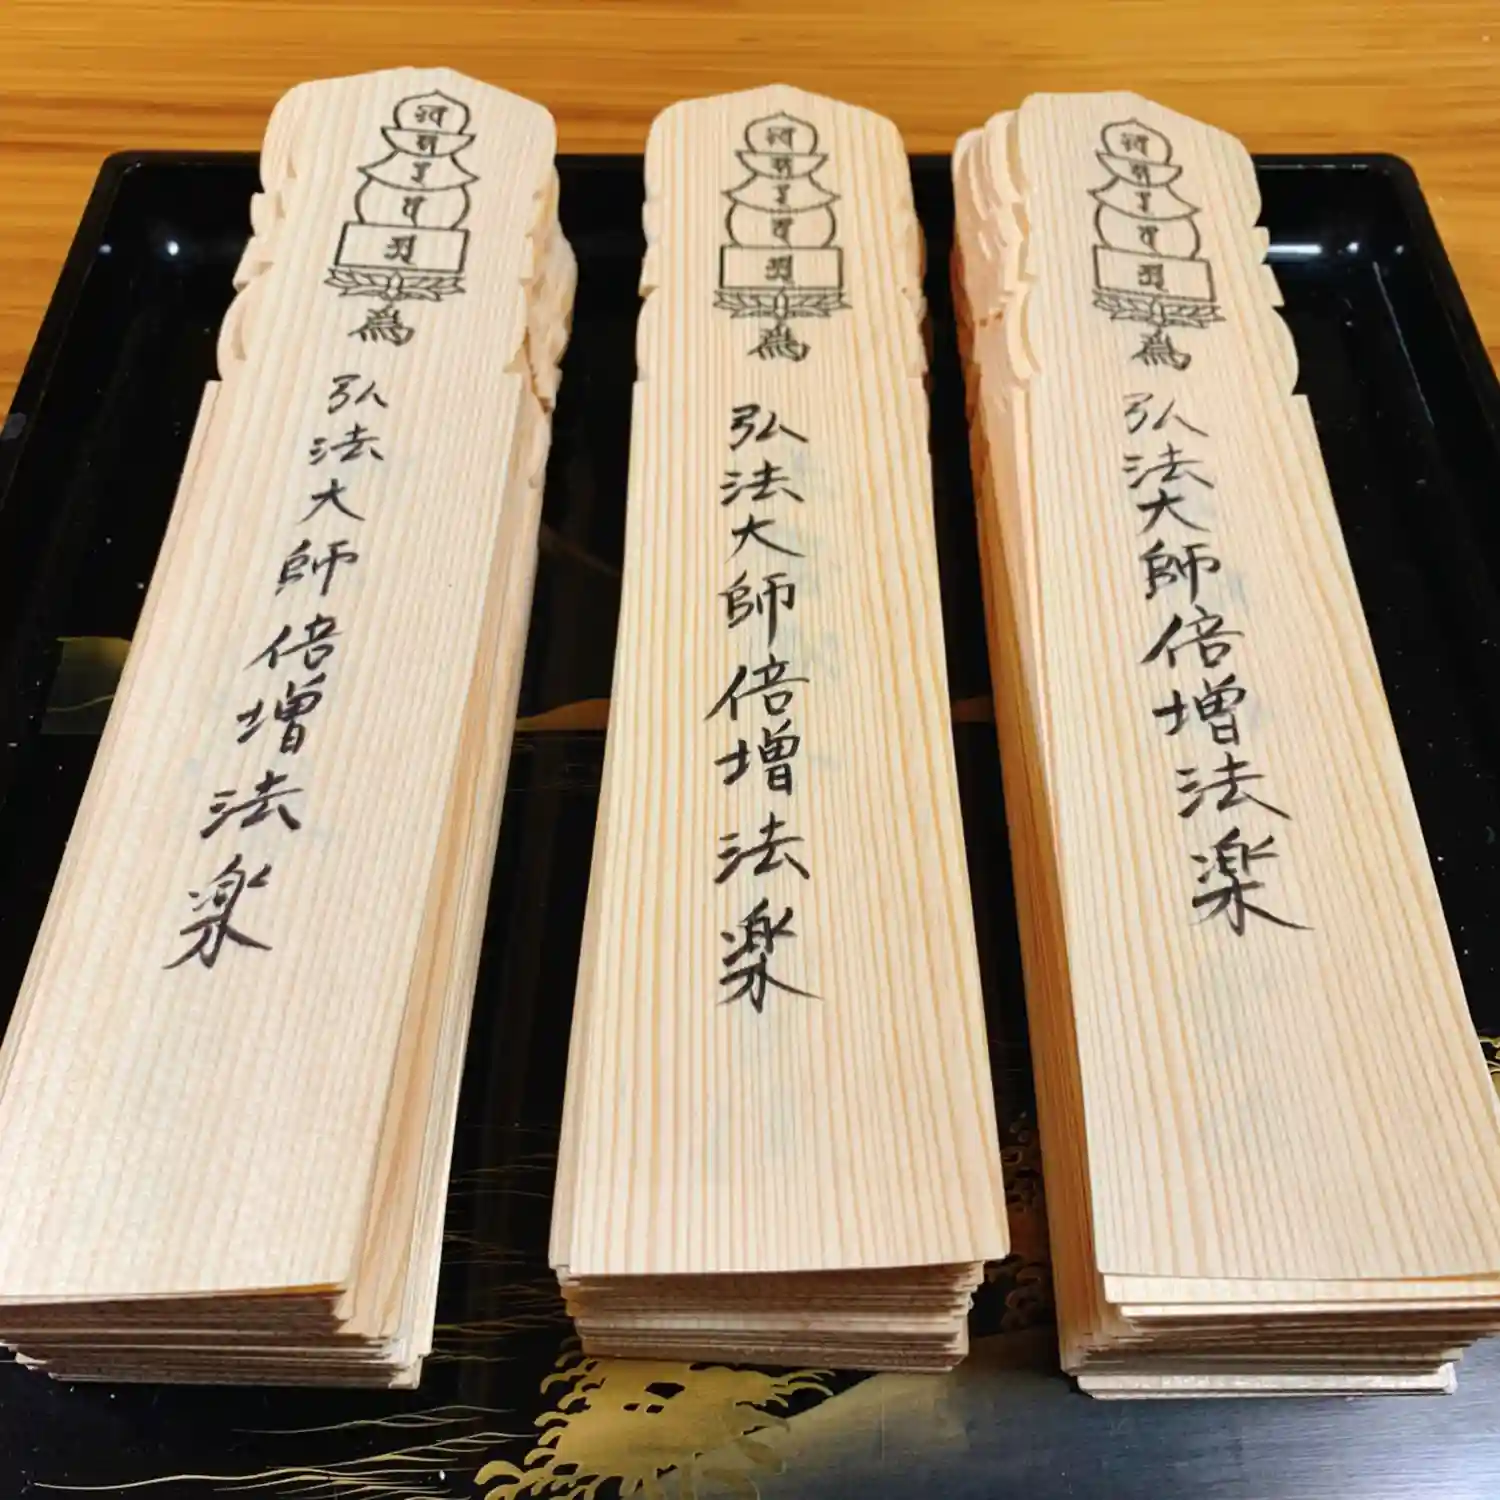 為
弘法大師倍増法楽
為
弘法大師倍増法楽
為
弘法大師倍増法楽